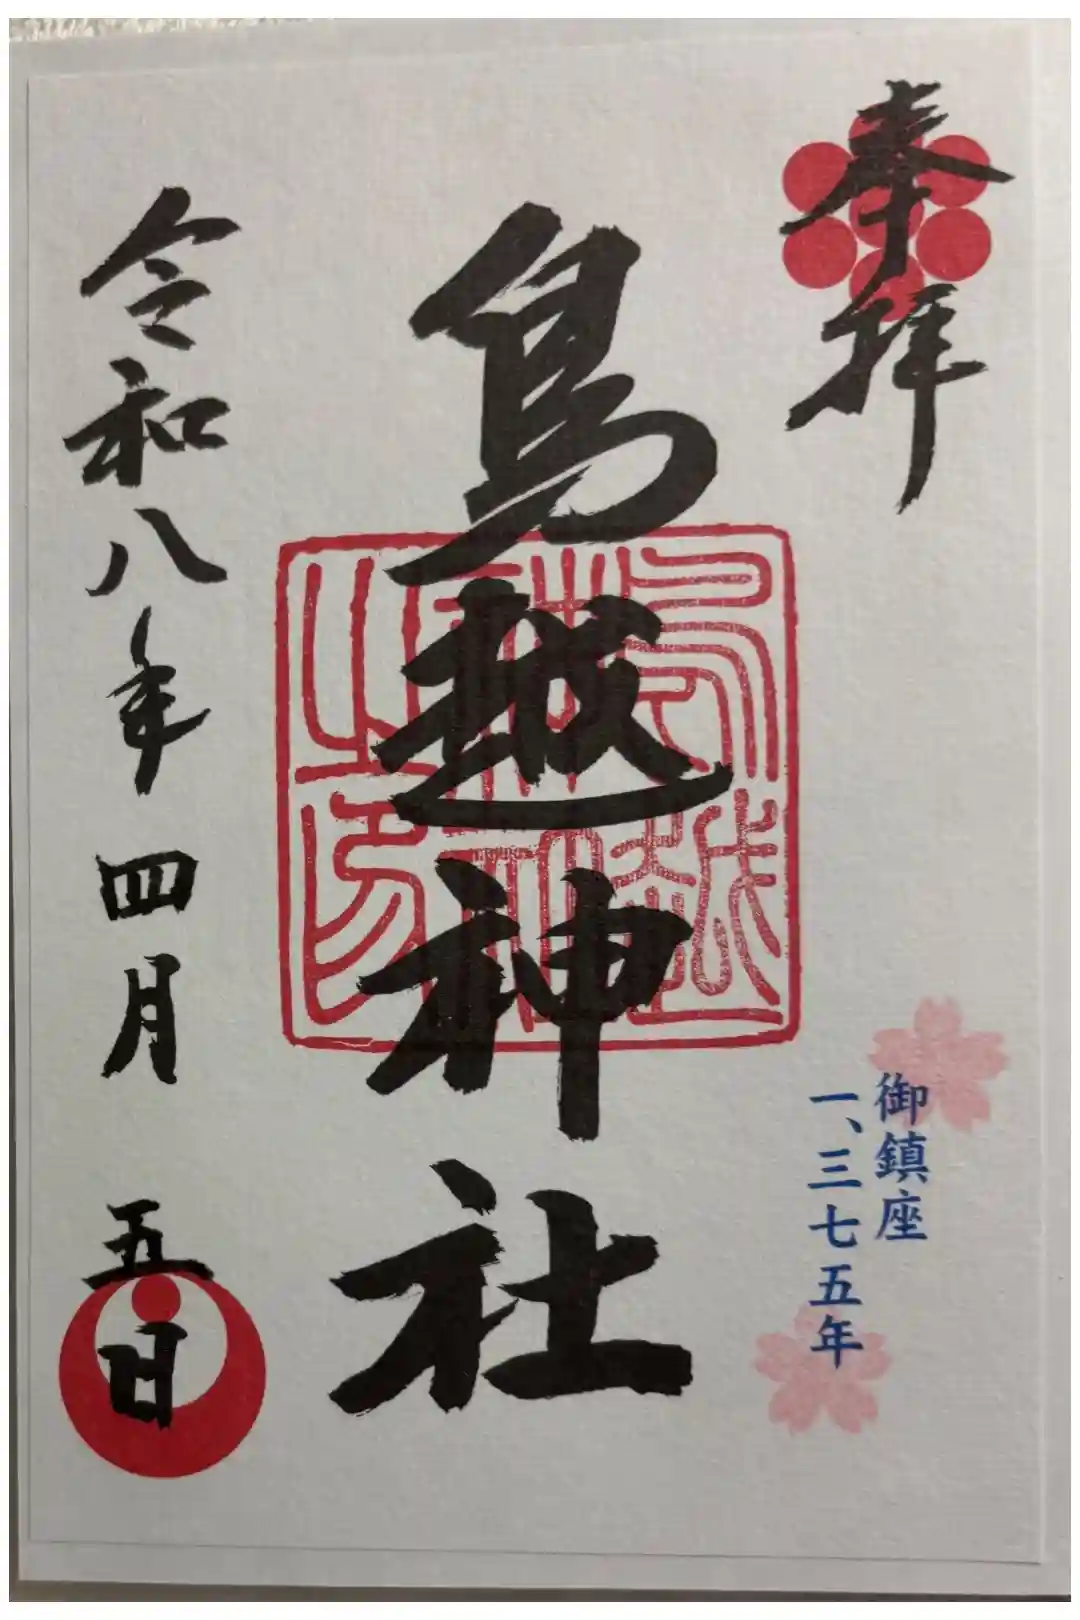 奉拝
鳥越神社
鳥越神社之印
御鎮座
一、三七五年
令和八年四月五日